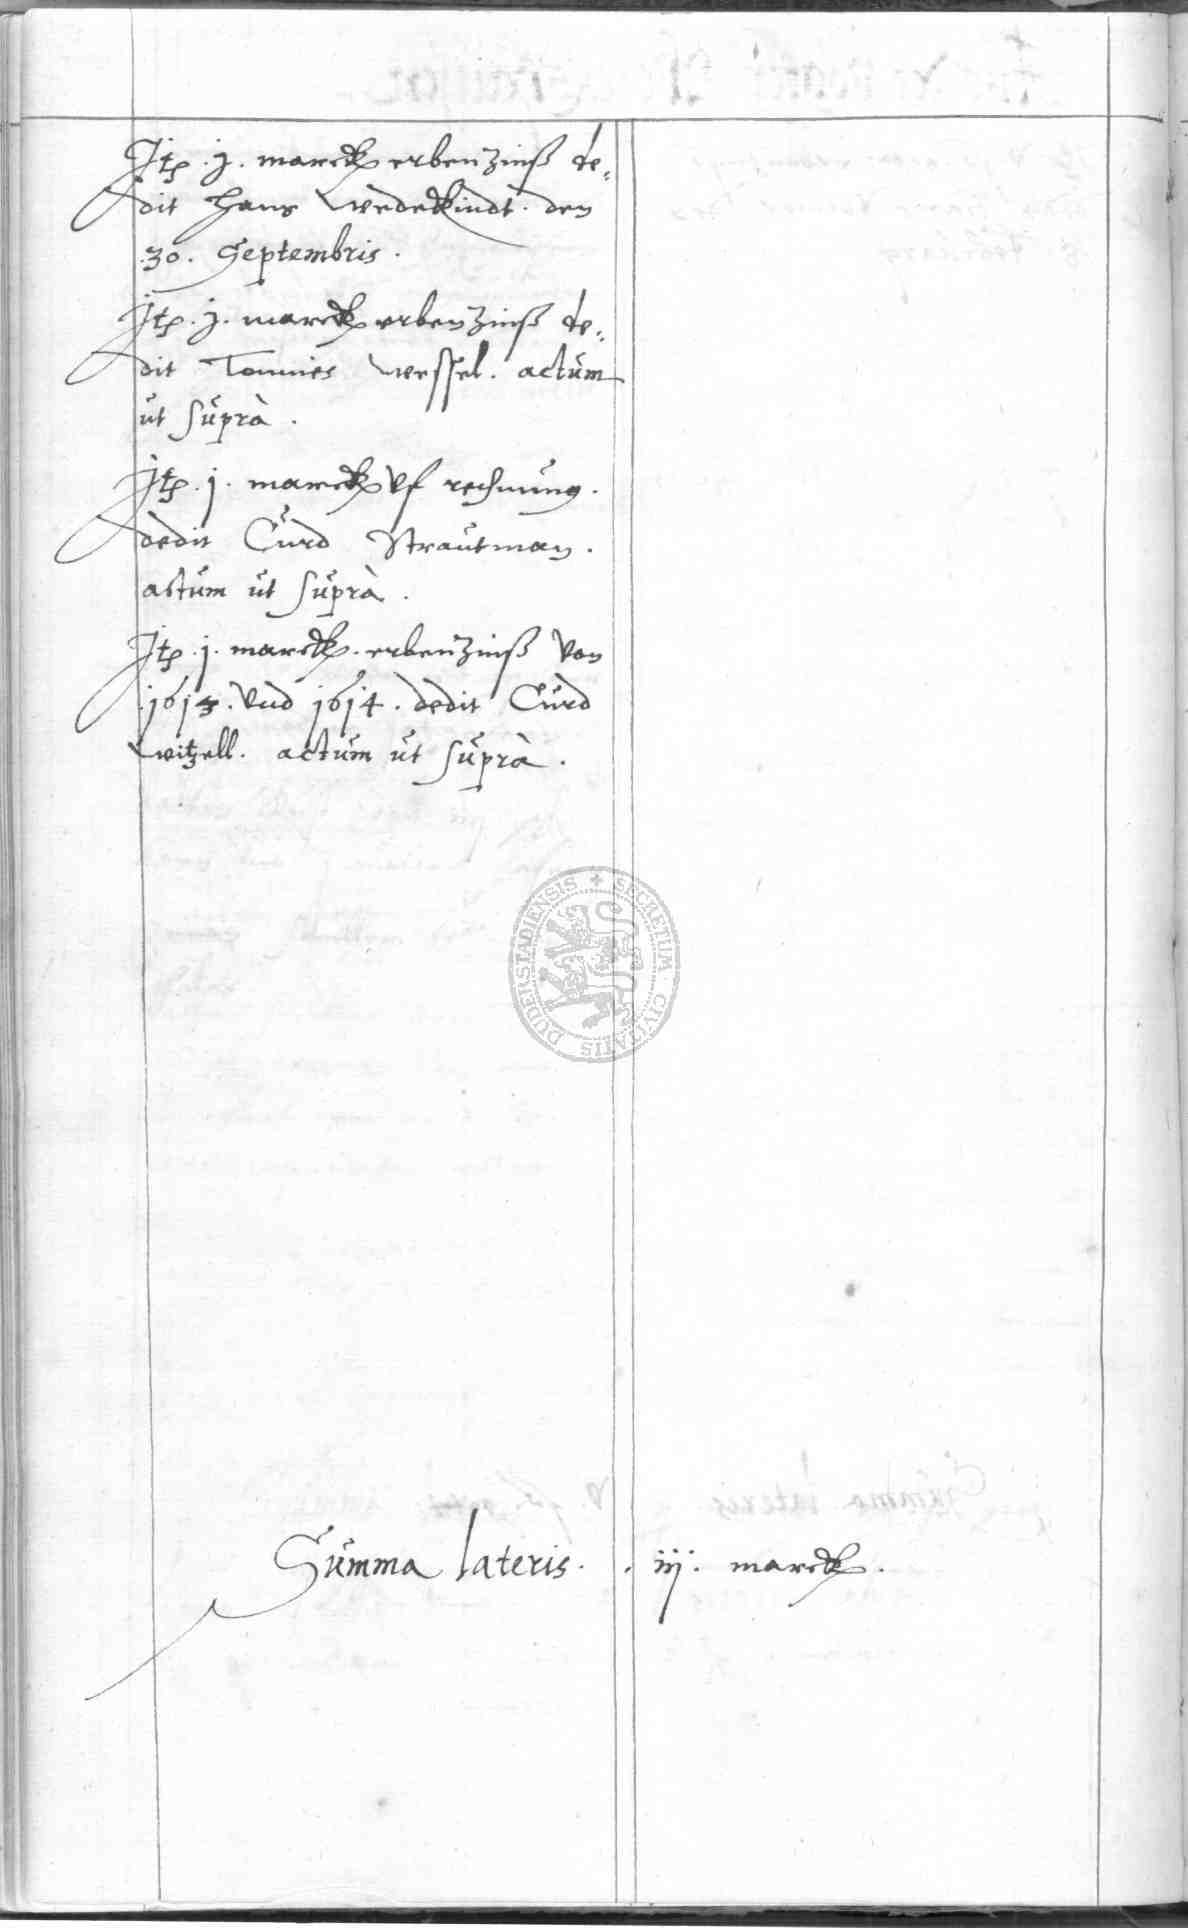 Itẽ .j. marck erbenzinß de=
dit Hans Wedekindt. den
.30. Septembris.
Itẽ .j. marck erbenzinß de=
dit Tonnies Wessel. actum
ut suprà.
Itẽ .j. marck vf rechnung.
dedit Curd Strautman.
actum ut suprà.
Itẽ .j. marck. erbenzinß von
.1613. vnd 1614. dedit Curd
Witzell. actum ut suprà.
SECRETUM CIVITATIS DUDERSTADIENSIS
Summa lateris. . iij. marck.